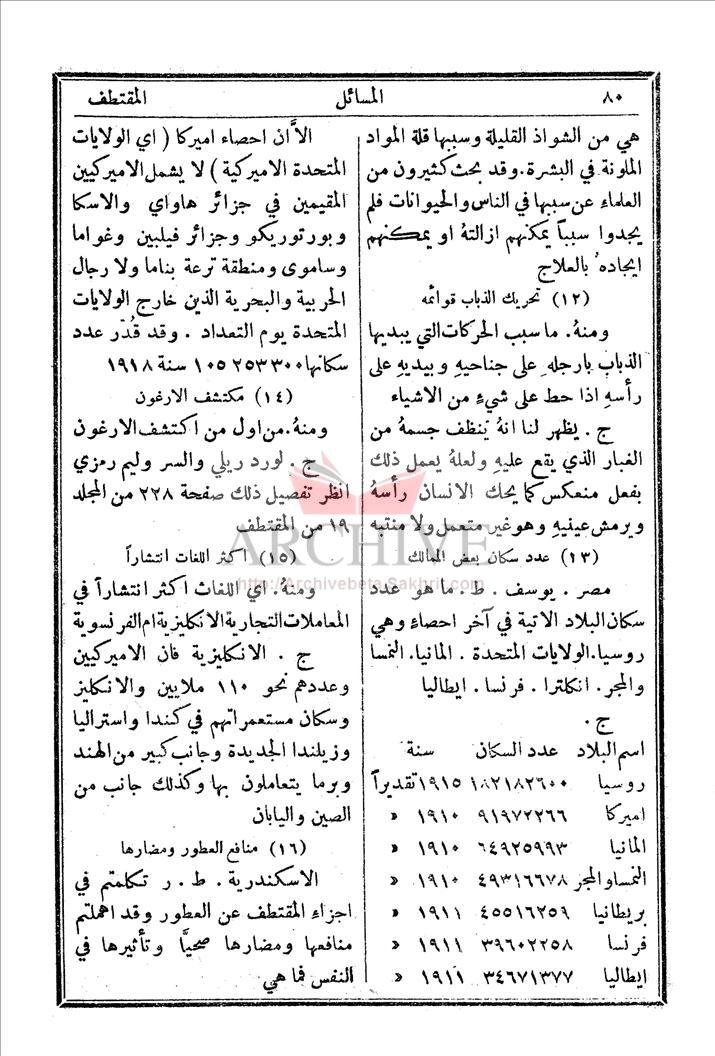 ٨٠ المسائل المقتطف
هي من الشواذ القليلة وسببها قلة المواد
الملونة في البشرة. وقد بحث كثيرون من
العلماءِ عن سببها في الناس والحيوانات فلم
يجدوا سبباً يمكنهم ازالتهُ او يمكنهم
ايجادهُ بالعلاج
(١٢) تحريك الذباب قوائمه
ومنهُ. ما سبب الحركات التي يبديها
الذباب بارجله على جناحيهِ وبيديهِ على
رأسهِ اذا حط على شيءٍ من الاشياء
ج. يظهر لنا انهُ ينظف جسمهُ من
الغبار الذي يقع عليهِ ولعلهُ يعمل ذلك
بفعل منعكس كما يحك الانسان رأسهُ
ويرمش عينيهِ وهو غير متعمل ولا منتبه
(١٣) عدد سكان بعض الممالك
مصر. يوسف. ط. ما هو عدد
سكان البلاد الاتية في آخر احصاءٍ وهي
روسيا. الولايات المتحدة. المانيا. النمسا
والمجر. انكلترا. فرنسا. ايطاليا
ج.
اسم البلاد عدد السكان سنة
روسيا ١٨٢١٨٢٦٠٠ ١٩١٥ تقديراً
اميركا ٩١٩٧٢٢٦٦ ١٩١٠ «
المانيا ٦٤٩٢٥٩٩٣ ١٩١٠ «
النمسا والمجر ٤٩٣١٦٦٧٨ ١٩١٠ «
بريطانيا ٤٥٥١٦٢٥٩ ١٩١١ «
فرنسا ٣٩٦٠٢٢٥٨ ١٩١١ «
ايطاليا ٣٤٦٧١٣٧٧ ١٩١١ «
الاَّن احصاء اميركا (اي الولايات
المتحدة الاميركية) لا يشمل الاميركيين
المقيمين في جزائر هاواي والاسكا
وبورتوريكو وجزائر فيلبين وغواما
وساموى ومنطقة ترعة بناما ولا رجال
الحربية والبحرية الذين خارج الولايات
المتحدة يوم التعداد. وقد قُدّر عدد
سكانها ١٠٥٢٥٣٣٠٠ سنة ١٩١٨
(١٤) مكتشف الارغون
ومنهُ. من اول من اكتشف الارغون
ج. لورد ريلي والسر وليم رمزي
انظر تفصيل ذلك صفحة ٢٢٨ من المجلد
١٩ من المقتطف
(١٥) اكثر اللغات انتشاراً
ومنهُ. اي اللغات اكثر انتشاراً في
المعاملات التجارية الانكليزية ام الفرنسوية
ج. الانكليزية فان الاميركيين
وعددهم نحو ١١٠ ملايين والانكليز
وسكان مستعمراتهم في كندا واستراليا
وزيلندا الجديدة وجانب كبير من الهند
وبرما يتعاملون بها وكذلك جانب من
الصين واليابان
(١٦) منافع العطور ومضارها
الاسكندرية. ط. ر تكلمتم في
اجزاءِ المقتطف عن العطور وقد اهملتم
منافعها ومضارها صحيًّا وتأثيرها في
النفس فما هي
ARCHIVE
http://Archivebeta.Sakhrit.com